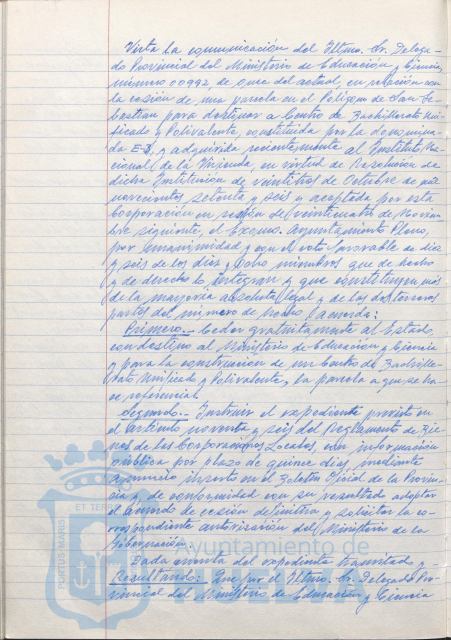 Vista la comunicación del Iltmo. Sr. Delega-
do Provincial del Ministerio de Educación y Ciencia,
número 00992, de once del actual, en relación con
la cesión de una parcela en el Polígono de San Se-
bastian para destinar a Centro de Bachillerato Uni-
ficado y Polivalente, constituida por la denomina-
da E-2, y adquirida recientemente al Instituto Na-
cional de la Vivienda, en virtud de Resolución de
dicha Institución de veintitres de Octubre de mil
novecientos setenta y seis y aceptada por esta
Corporación en sesión de veinticuatro de Noviem-
bre siguiente, el Excmo. Ayuntamiento Pleno,
por unanimidad y con el voto favorable de diez
y seis de los diez y ocho miembros que de hecho
y de derecho lo integran y que constituyen más
de la mayoria absoluta legal y de los dos terceras
partes del número de hecho, acuerda:
Primero.- Ceder gratuitamente al Estado,
con destino al Ministerio de Educación y Ciencia
y para la construcción de un Centro de Bachille-
rato Unificado y Polivalente, la parcela a que se ha-
ce referencia.
Segundo.- Instruir el expediente previsto en
el artículo noventa y seis del Reglamento de Bie-
nes de las Corporaciones Locales, con información
pública por plazo de quince días, mediante
anuncio inserto en el Boletín Oficial de la Provin-
cia y, de conformidad con su resultado adoptar
el acuerdo de cesión definitiva y solicitar la co-
rrespondiente autorización del Ministerio de la
Gobernación.
Dada cuenta del expediente tramitado y
Resultando: Que por el Iltmo. Sr. Delegado Pro-
vincial del Ministerio de Educación y Ciencia
Ayuntamiento de
PORTUS MARIS
ET TERR